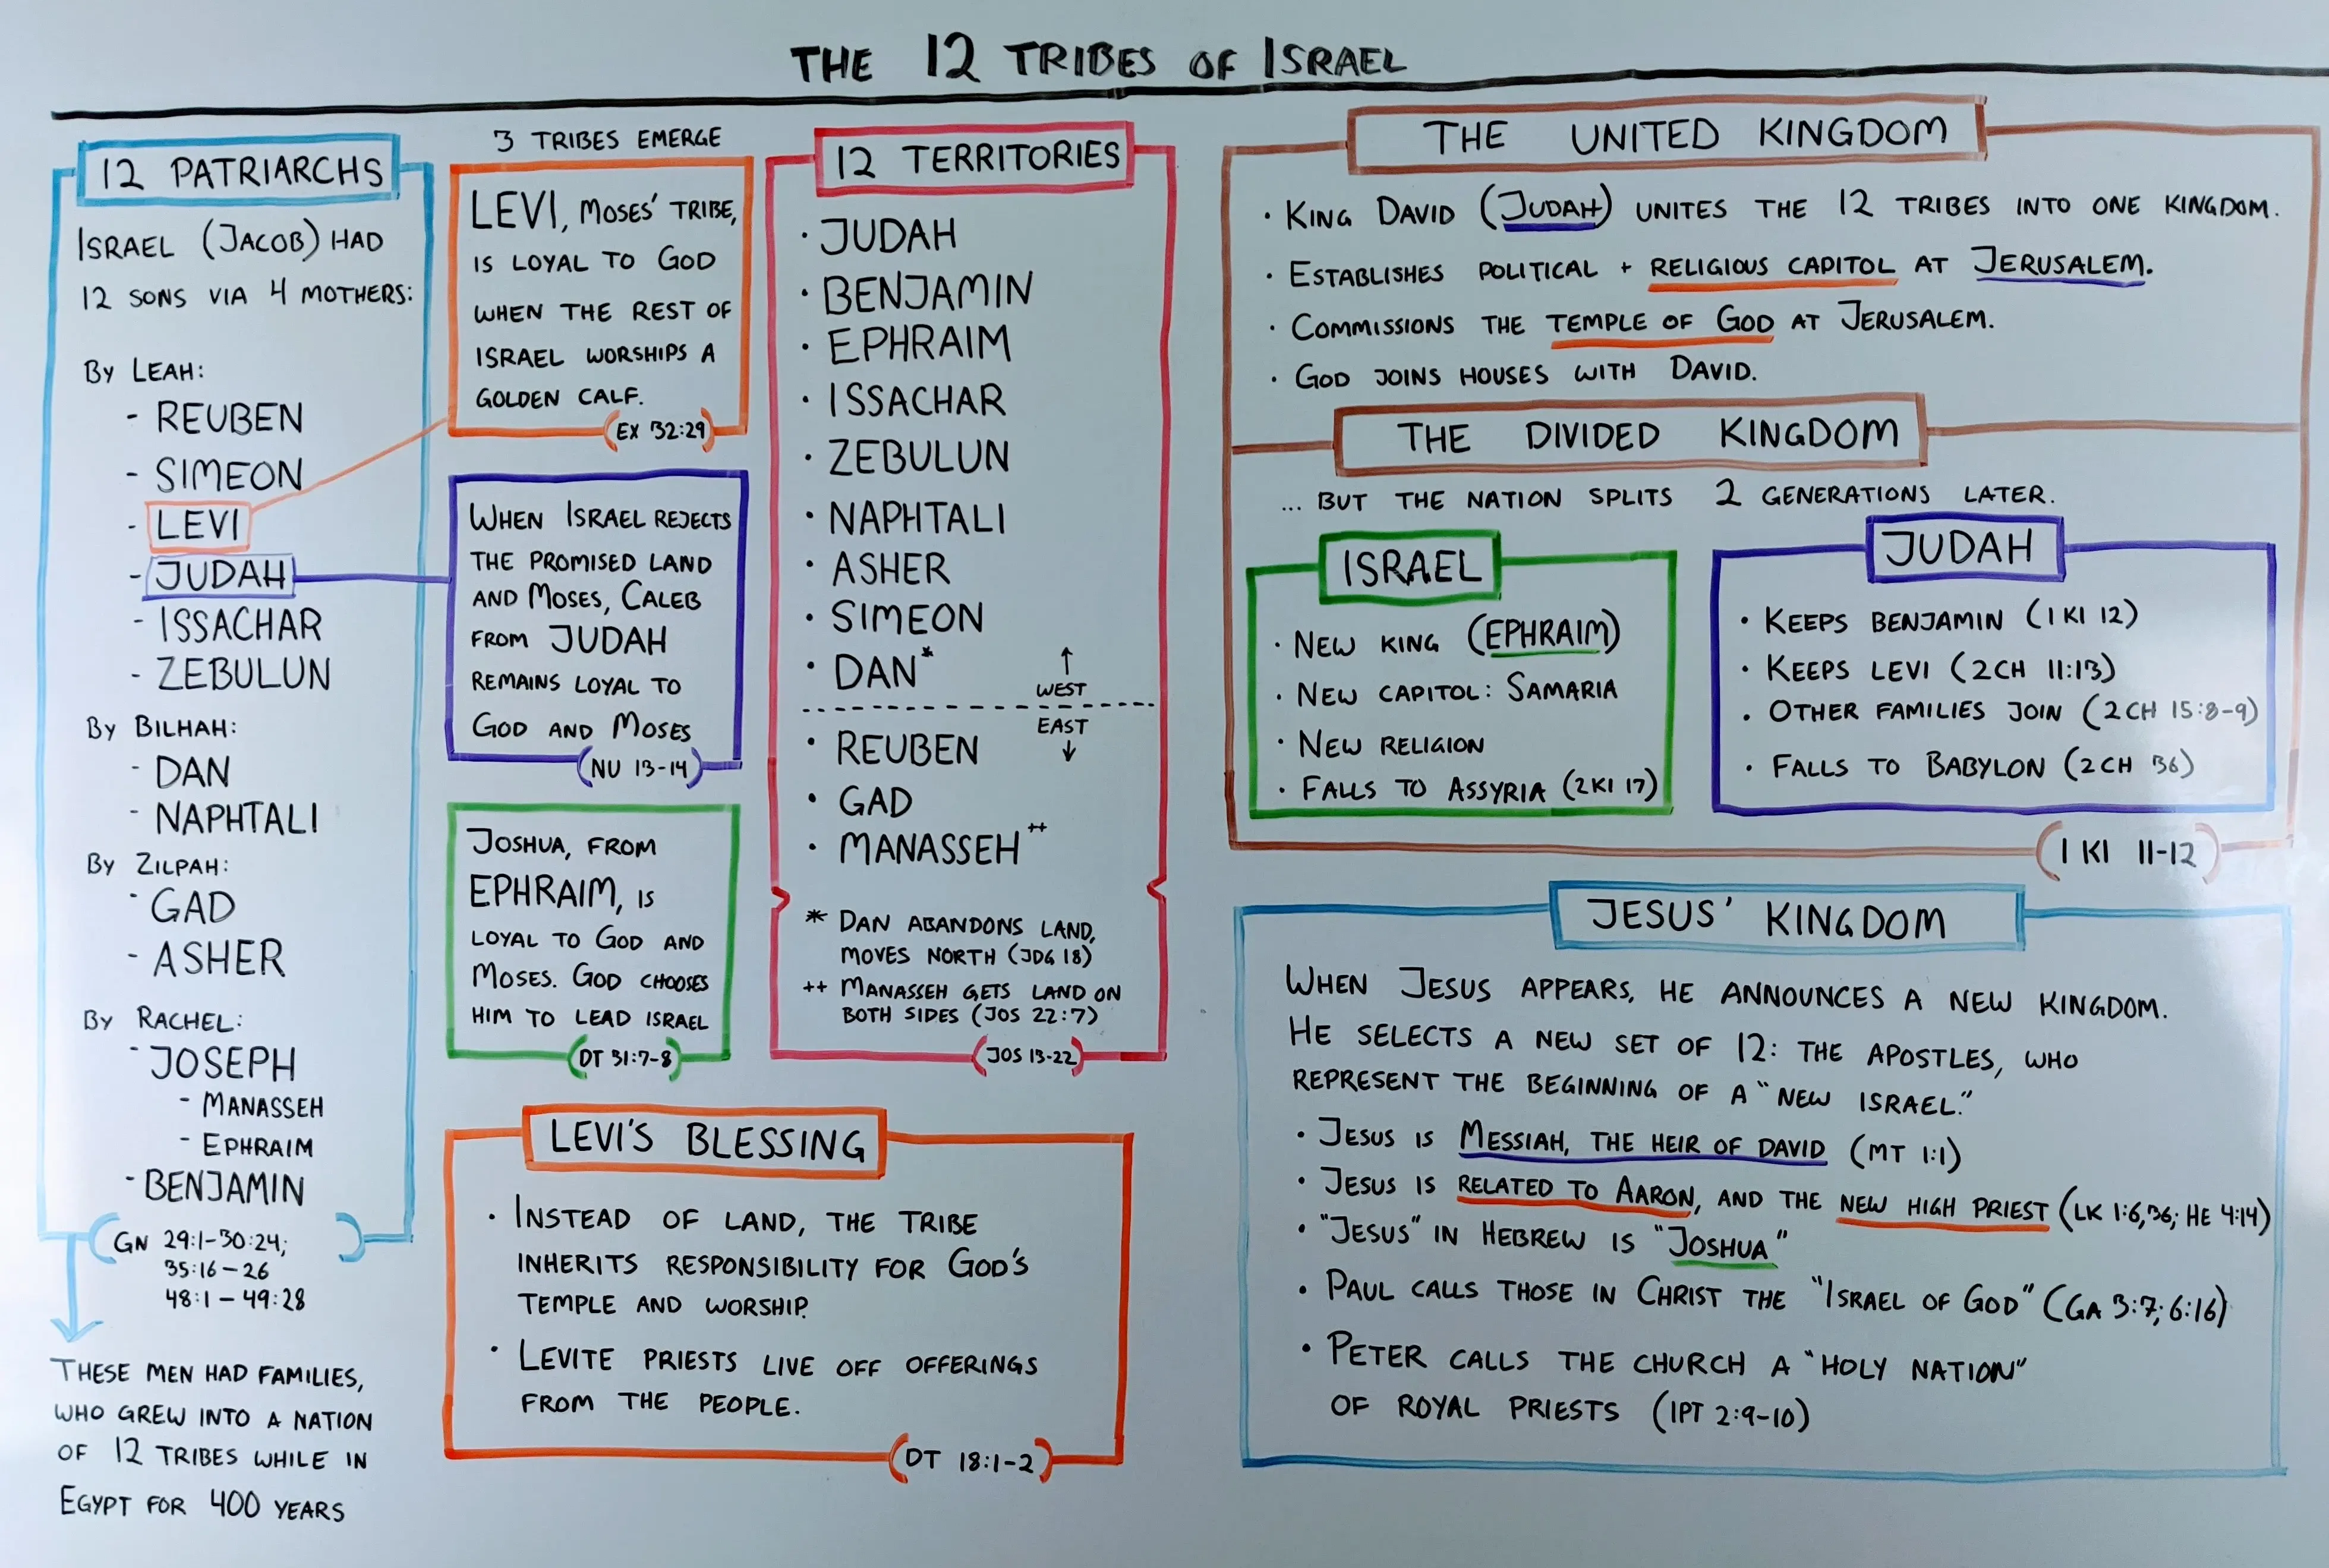 THE 12 TRIBES OF ISRAEL
12 PATRIARCHS
ISRAEL (JACOB) HAD
12 SONS VIA 4 MOTHERS:
BY LEAH:
- REUBEN
- SIMEON
- LEVI
- JUDAH
- ISSACHAR
- ZEBULUN
BY BILHAH:
- DAN
- NAPHTALI
BY ZILPAH:
- GAD
- ASHER
BY RACHEL:
- JOSEPH
- MANASSEH
- EPHRAIM
- BENJAMIN
(GN 29:1-30:24;
35:16-26
48:1-49:28)
THESE MEN HAD FAMILIES,
WHO GREW INTO A NATION
OF 12 TRIBES WHILE IN
EGYPT FOR 400 YEARS
3 TRIBES EMERGE
LEVI, MOSES' TRIBE,
IS LOYAL TO GOD
WHEN THE REST OF
ISRAEL WORSHIPS A
GOLDEN CALF.
(EX 32:29)
WHEN ISRAEL REJECTS
THE PROMISED LAND
AND MOSES, CALEB
FROM JUDAH
REMAINS LOYAL TO
GOD AND MOSES
(NU 13-14)
JOSHUA, FROM
EPHRAIM, IS
LOYAL TO GOD AND
MOSES. GOD CHOOSES
HIM TO LEAD ISRAEL
(DT 31:7-8)
12 TERRITORIES
· JUDAH
· BENJAMIN
· EPHRAIM
· ISSACHAR
· ZEBULUN
· NAPHTALI
· ASHER
· SIMEON
· DAN*
↑
WEST
EAST
↓
· REUBEN
· GAD
· MANASSEH++
* DAN ABANDONS LAND,
MOVES NORTH (JDG 18)
++ MANASSEH GETS LAND ON
BOTH SIDES (JOS 22:7)
(JOS 13-22)
LEVI'S BLESSING
· INSTEAD OF LAND, THE TRIBE
INHERITS RESPONSIBILITY FOR GOD'S
TEMPLE AND WORSHIP.
· LEVITE PRIESTS LIVE OFF OFFERINGS
FROM THE PEOPLE.
(DT 18:1-2)
THE UNITED KINGDOM
· KING DAVID (JUDAH) UNITES THE 12 TRIBES INTO ONE KINGDOM.
· ESTABLISHES POLITICAL + RELIGIOUS CAPITOL AT JERUSALEM.
· COMMISSIONS THE TEMPLE OF GOD AT JERUSALEM.
· GOD JOINS HOUSES WITH DAVID.
THE DIVIDED KINGDOM
... BUT THE NATION SPLITS 2 GENERATIONS LATER.
ISRAEL
· NEW KING (EPHRAIM)
· NEW CAPITOL: SAMARIA
· NEW RELIGION
· FALLS TO ASSYRIA (2KI 17)
JUDAH
· KEEPS BENJAMIN (1 KI 12)
· KEEPS LEVI (2CH 11:13)
· OTHER FAMILIES JOIN (2CH 15:8-9)
· FALLS TO BABYLON (2CH 36)
(1 KI 11-12)
JESUS' KINGDOM
WHEN JESUS APPEARS, HE ANNOUNCES A NEW KINGDOM.
HE SELECTS A NEW SET OF 12: THE APOSTLES, WHO
REPRESENT THE BEGINNING OF A "NEW ISRAEL."
· JESUS IS MESSIAH, THE HEIR OF DAVID (MT 1:1)
· JESUS IS RELATED TO AARON, AND THE NEW HIGH PRIEST (LK 1:6,36; HE 4:14)
· "JESUS" IN HEBREW IS "JOSHUA"
· PAUL CALLS THOSE IN CHRIST THE "ISRAEL OF GOD" (GA 3:7; 6:16)
· PETER CALLS THE CHURCH A "HOLY NATION"
OF ROYAL PRIESTS (1PT 2:9-10)